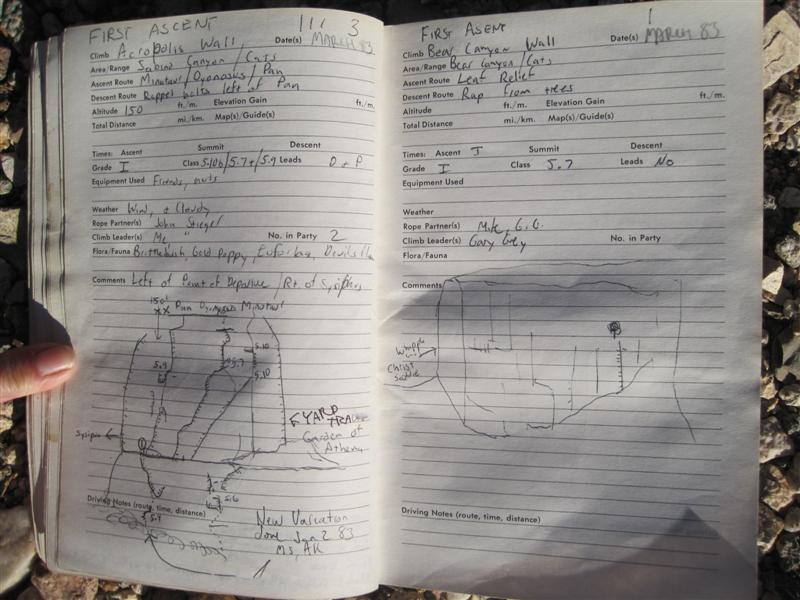 FIRST ASCENT 111 3
Climb Acropolis Wall Date(s) MARCH 83
Area/Range Sabino Canyon / Cats
Ascent Route Minutaur / Dyonosus / Pan
Descent Route Rappel bolts left of Pan
Altitude 150 ft./m. Elevation Gain ft./m.
Total Distance mi./km. Map(s)/Guide(s)
Times: Ascent Summit Descent
Grade I Class 5.10b/5.7+/5.9 Leads D + P
Equipment Used Friends, nuts
Weather Wind, + Cloudy
Rope Partner(s) John Stiegel
Climb Leader(s) Me, " No. in Party 2
Flora/Fauna Brittlebush Gold Poppy,
Comments Left of Point of Departure / Rt of Sysiphus
150'
XX Pan Dyonosus Minutaur
5.10
5.9 5.7
5.10
Garden of
Athena
5.6
Driving Notes (route, time, distance)
5.9
New Variation
done Jan 2 83
MS, AK
FIRST ASENT 1
Climb Bear Canyon Wall Date(s) MARCH 83
Area/Range Bear Canyon / Cats
Ascent Route Leaf Relief
Descent Route Rap from trees
Altitude ft./m. Elevation Gain ft./m.
Total Distance mi./km. Map(s)/Guide(s)
Times: Ascent I Summit Descent
Grade I Class 5.7 Leads No
Equipment Used
Weather
Rope Partner(s) Mike, G.G.
Climb Leader(s) Gary Gray No. in Party
Flora/Fauna
Comments
Driving Notes (route, time, distance)